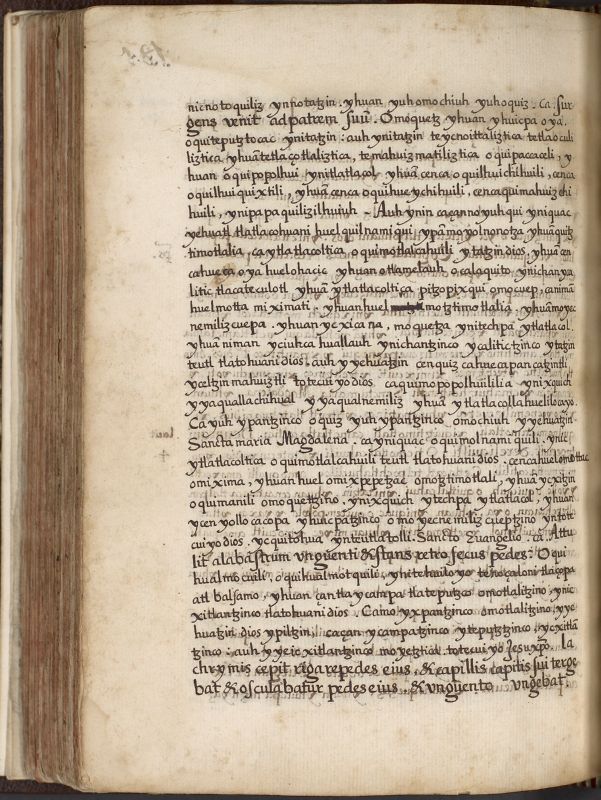 nicnotoquiliz ynnotatzin. yhuan yuh omochiuh yuh oquiz. Ca. Sur
gens venit ad patrem suũ. Omoquetz yhuan yhuicpa oya.
oquiteputztocac ynitatzin: auh ynitatzin teycnoittaliztica tetlaoculi
liztica, yhuã tetlaçotlaliztica, temahuizmatiliztica oquipacaceli, y
huan oquipopolhui ynitlatlacol yhuã cenca oquilhuichihuili, cenca
oquilhuiquixtili, yhuã cenca oquilhueychihuili, cenca quimahuizchi
huili, ynipapaquilizilhuiuh. Auh ynin caçanno yuhqui yniquac
yehuatl tlatlacohuani huel quilnamiqui ypãmoyolnonotza yhuã quitz
timotlalia, ca ytlatlacoltica oquimotlalcahuili ytatzin dios, yhuã cen
ca hueca oya huel ohacic yhuan otlamelauh, ocaloquito ynichan ya
litic tlacateculotl yhuã ytlatlacoltica pitzopixqui omocuep, canimã
huelmotta miximati. yhuan huel motztimotlalia, yhuã moyec
nemilizcuepa. yhuan ycxicana, moquetza ynitechpa ytlatlacol
yhuã niman yciuhca huallauh ynichantzinco ycalitictzinco ytatzin
teutl tlatohuani dios. auh yyehuatzin cenquizcahuecapancatzintli
yceltzin mahuiztli totecuiyo dios ca quimopopolhuililia ynixquich
yyaqualla chihual yyaqualnemiliz yhuã ytlatlacollahuelilocayo.
Ca yuh ypantzinco oquiz yuh ypantzinco omochiuh yyehuatzin
Sancta maria Magdalena. ca yniquac oquimolnamiquili. ynic
ytlatlacoltica oquimotlalcahuili teutl tlatohuani dios. cenca huel omottac
omixima, yhuan huel omixpepetzac omotztimotlali, yhuã ycxitzin
oqumanili omoquetzino. ynixquich ytechpa ytlatlacol, yhuan
ycenyollocacopa yhuicpatzinco omoyecnemiliz cueptzino yntote
cuiyo dios. yc quitohua ynteutlatolli. Sancto Euangelio. ca. Attu
lit alabastrum unguenti & stans retro secus pedes: Oqui
hualmocuili, oquihualmotquili, yhitehuiloyo tenoçaloni tlaçopa
atl balsamo, yhuan çantlaycampa tlateputzco omotlalitzino, ynic
xitlantzinco tlatohuani dios. Camo yxpantzinco omotlalitzino, yye
huatzin dios ypiltzin, caçan ycampatzinco yteputztzinco ycxitlã
tzinco: auh yyeicxitlantzinco moyetztica totecuiyo Jesu xpo. la
chrymis cepit rigare pedes eius, & capillis capitis sui terge
bat & osculabatur pedes eius, & unguento ungebat.